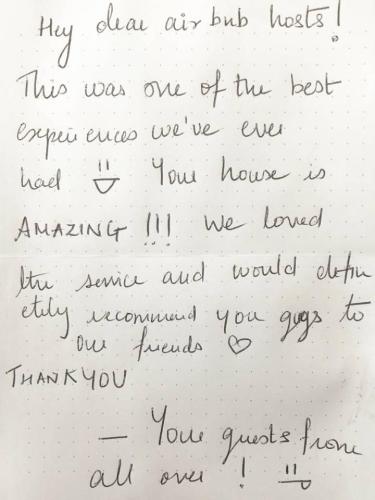 Hey dear air bnb hosts!
This was one of the best
experiences we've ever
had Your house is
AMAZING!!! We loved
the service and would defin
etely recommend you guys to
our friends ♡
THANKYOU
— Your guests from
all over!